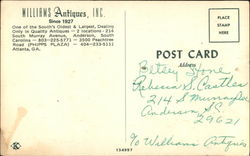 WILLIAMS Antiques, INC.
Since 1927
One of the South's Oldest & Largest, Dealing
Only in Quality Antiques — 2 locations— 214
South Murray Avenue, Anderson, South
Carolina — 803-225-5771 — 3500 Peachtree
Road (PHIPPS PLAZA) — 404-233-5151
Atlanta, GA.
POST CARD
Address
Betsey Stone
Rebecca S. Castles
214 S Murray Ave
Anderson SC
29621
% Williams Antiques
K
134997